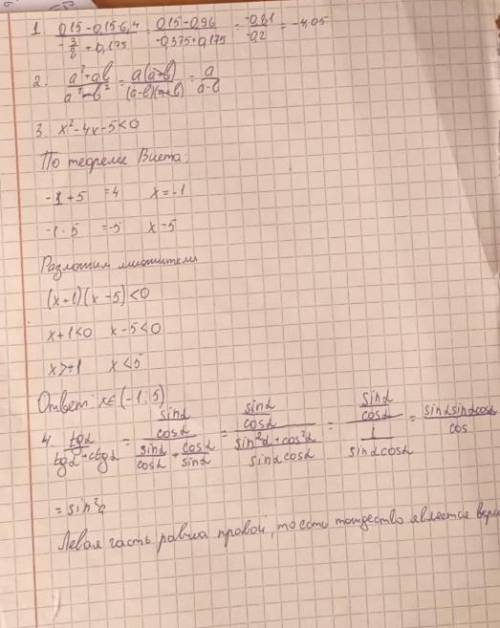 1. (0,15-0,15·6,4)/(-3/8+0,175) = (0,15-0,96)/(-0,375+0,175) = -0,81/-0,2 = -4,05
2. (a²+ab)/(a²-b²) = a(a+b)/((a-b)(a+b)) = a/(a-b)
3. x²-4x-5<0
По теореме Виета
-1+5 =4 x=-1
-1·5 =-5 x-5
Разложим множители
(x+1)(x-5)<0
x+1<0 x-5<0
x>-1 x<5
Ответ: x∈(-1;5)
4. tgα/(tgα+ctgα) = (sinα/cosα)/(sinα/cosα+cosα/sinα) = (sinα/cosα)/((sin²α+cos²α)/(sinαcosα)) = (sinα/cosα)/(1/(sinαcosα)) = sinαsinαcosα/cos
=sin²α
Левая часть равна правой, то есть тождество является вер